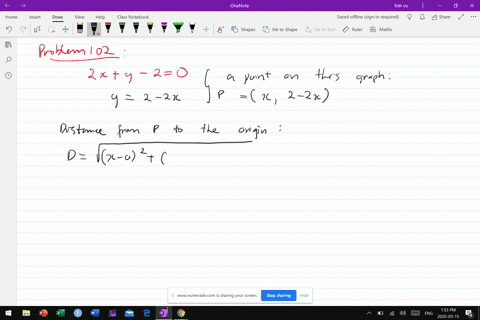 OneNote
linh vu
File Home Insert Draw View Help Class Notebook
Saved offline (sign-in required)
Shapes Ink to Shape Ink to Text Math Ruler
Problem 102 :
2x + y - 2 = 0 a point on this graph:
y = 2 - 2x P = (x, 2-2x)
Distance from P to the origin :
D = √(x-0)² + (
www.numerade.com is sharing your screen. Stop sharing Hide
ENG
1:33 PM
2020-03-15